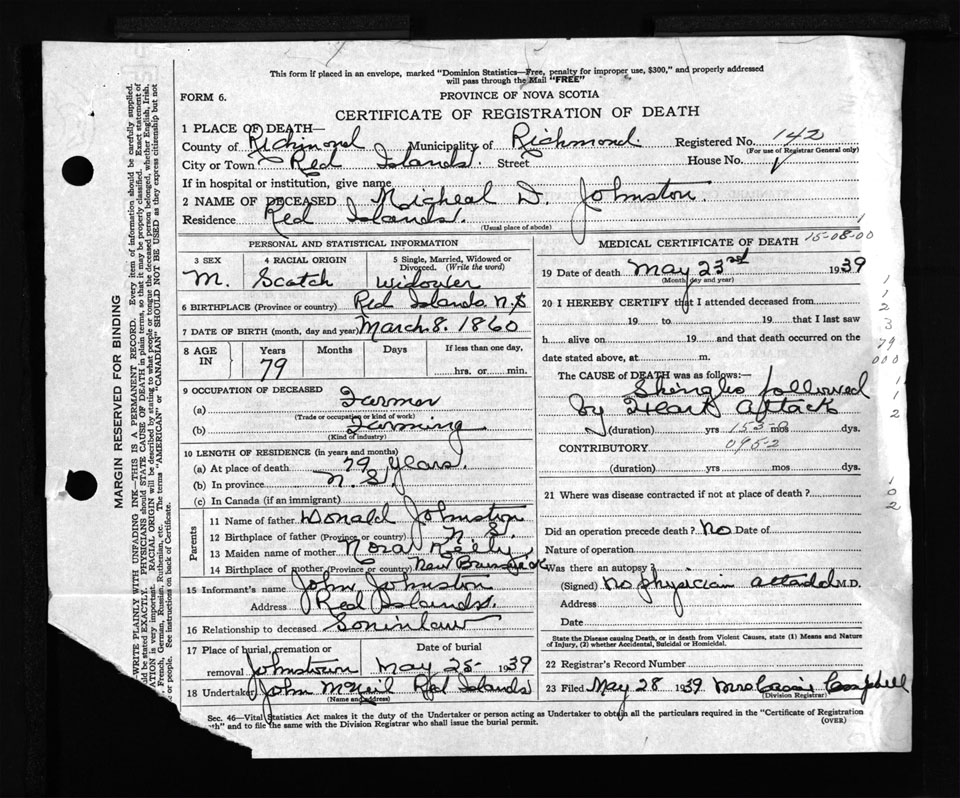 This form if placed in an envelope, marked "Dominion Statistics—Free, penalty for improper use, $300," and properly addressed
will pass through the Mail "FREE"
FORM 6.
PROVINCE OF NOVA SCOTIA
CERTIFICATE OF REGISTRATION OF DEATH
1 PLACE OF DEATH—
County of Richmond Municipality of Richmond. Registered No. 142
(For use of Registrar General only)
City or Town Red Islands. Street House No.
If in hospital or institution, give name
2 NAME OF DECEASED Micheal D. Johnston.
Residence Red Islands.
(Usual place of abode)
PERSONAL AND STATISTICAL INFORMATION
3 SEX 4 RACIAL ORIGIN 5 Single, Married, Widowed or
Divorced. (Write the word)
M. Scotch Widower
6 BIRTHPLACE (Province or country) Red Islands N.S
7 DATE OF BIRTH (month, day and year) March. 8. 1860
8 AGE IN Years Months Days If less than one day,
79 hrs. or min.
9 OCCUPATION OF DECEASED
(a) Farmer
(Trade or occupation or kind of work)
(b) Farming
(Kind of industry)
10 LENGTH OF RESIDENCE (in years and months)
(a) At place of death 79 years.
(b) In province N. S.
(c) In Canada (if an immigrant)
Parents
11 Name of father Donald Johnston
12 Birthplace of father (Province or country) N. S.
13 Maiden name of mother Nora Keily
14 Birthplace of mother (Province or country) New Brunswick
15 Informant's name John Johnston
Address Red Islands.
16 Relationship to deceased Soninlaw
17 Place of burial, cremation or Date of burial
removal Johnstown May 25 1939
18 Undertaker John McNeil Red Islands
(Name and address)
MEDICAL CERTIFICATE OF DEATH 15-08-00
19 Date of death May 23rd 1939
(Month, day and year)
20 I HEREBY CERTIFY that I attended deceased from
19 to 19 that I last saw
h alive on 19 and that death occurred on the
date stated above, at m.
The CAUSE of DEATH was as follows:—
Shingles followed
by Heart Attack
(duration) yrs 153-0 mos dys.
CONTRIBUTORY 095-2
(duration) yrs mos dys.
21 Where was disease contracted if not at place of death ?
Did an operation precede death ? No Date of
Nature of operation
Was there an autopsy ?
(Signed) No physician attended M.D.
Address
Date
State the Disease causing Death, or in death from Violent Causes, state (1) Means and Nature
of Injury, (2) whether Accidental, Suicidal or Homicidal.
22 Registrar's Record Number
23 Filed May 28 1939 Mrs Campbell
(Division Registrar)
Sec. 46—Vital Statistics Act makes it the duty of the Undertaker or person acting as Undertaker to obtain all the particulars required in the "Certificate of Registration
and to file the same with the Division Registrar who shall issue the burial permit. (OVER)
MARGIN RESERVED FOR BINDING
WRITE PLAINLY WITH UNFADING INK—THIS IS A PERMANENT RECORD. Every item of information should be carefully supplied.
be stated EXACTLY. PHYSICIANS should STATE CAUSE OF DEATH in plain terms, so that it may be properly classified. Exact statement of
is very important. RACIAL ORIGIN will be described by stating to what people or tongue the deceased person belonged, whether English, Irish,
French, German, Russian, Ruthenian, etc. The terms "AMERICAN" or "CANADIAN" SHOULD NOT BE USED as they express citizenship but not
or people. See instructions on back of Certificate.
1
1
1
2
3
79
000
1
1
2
1
0
2